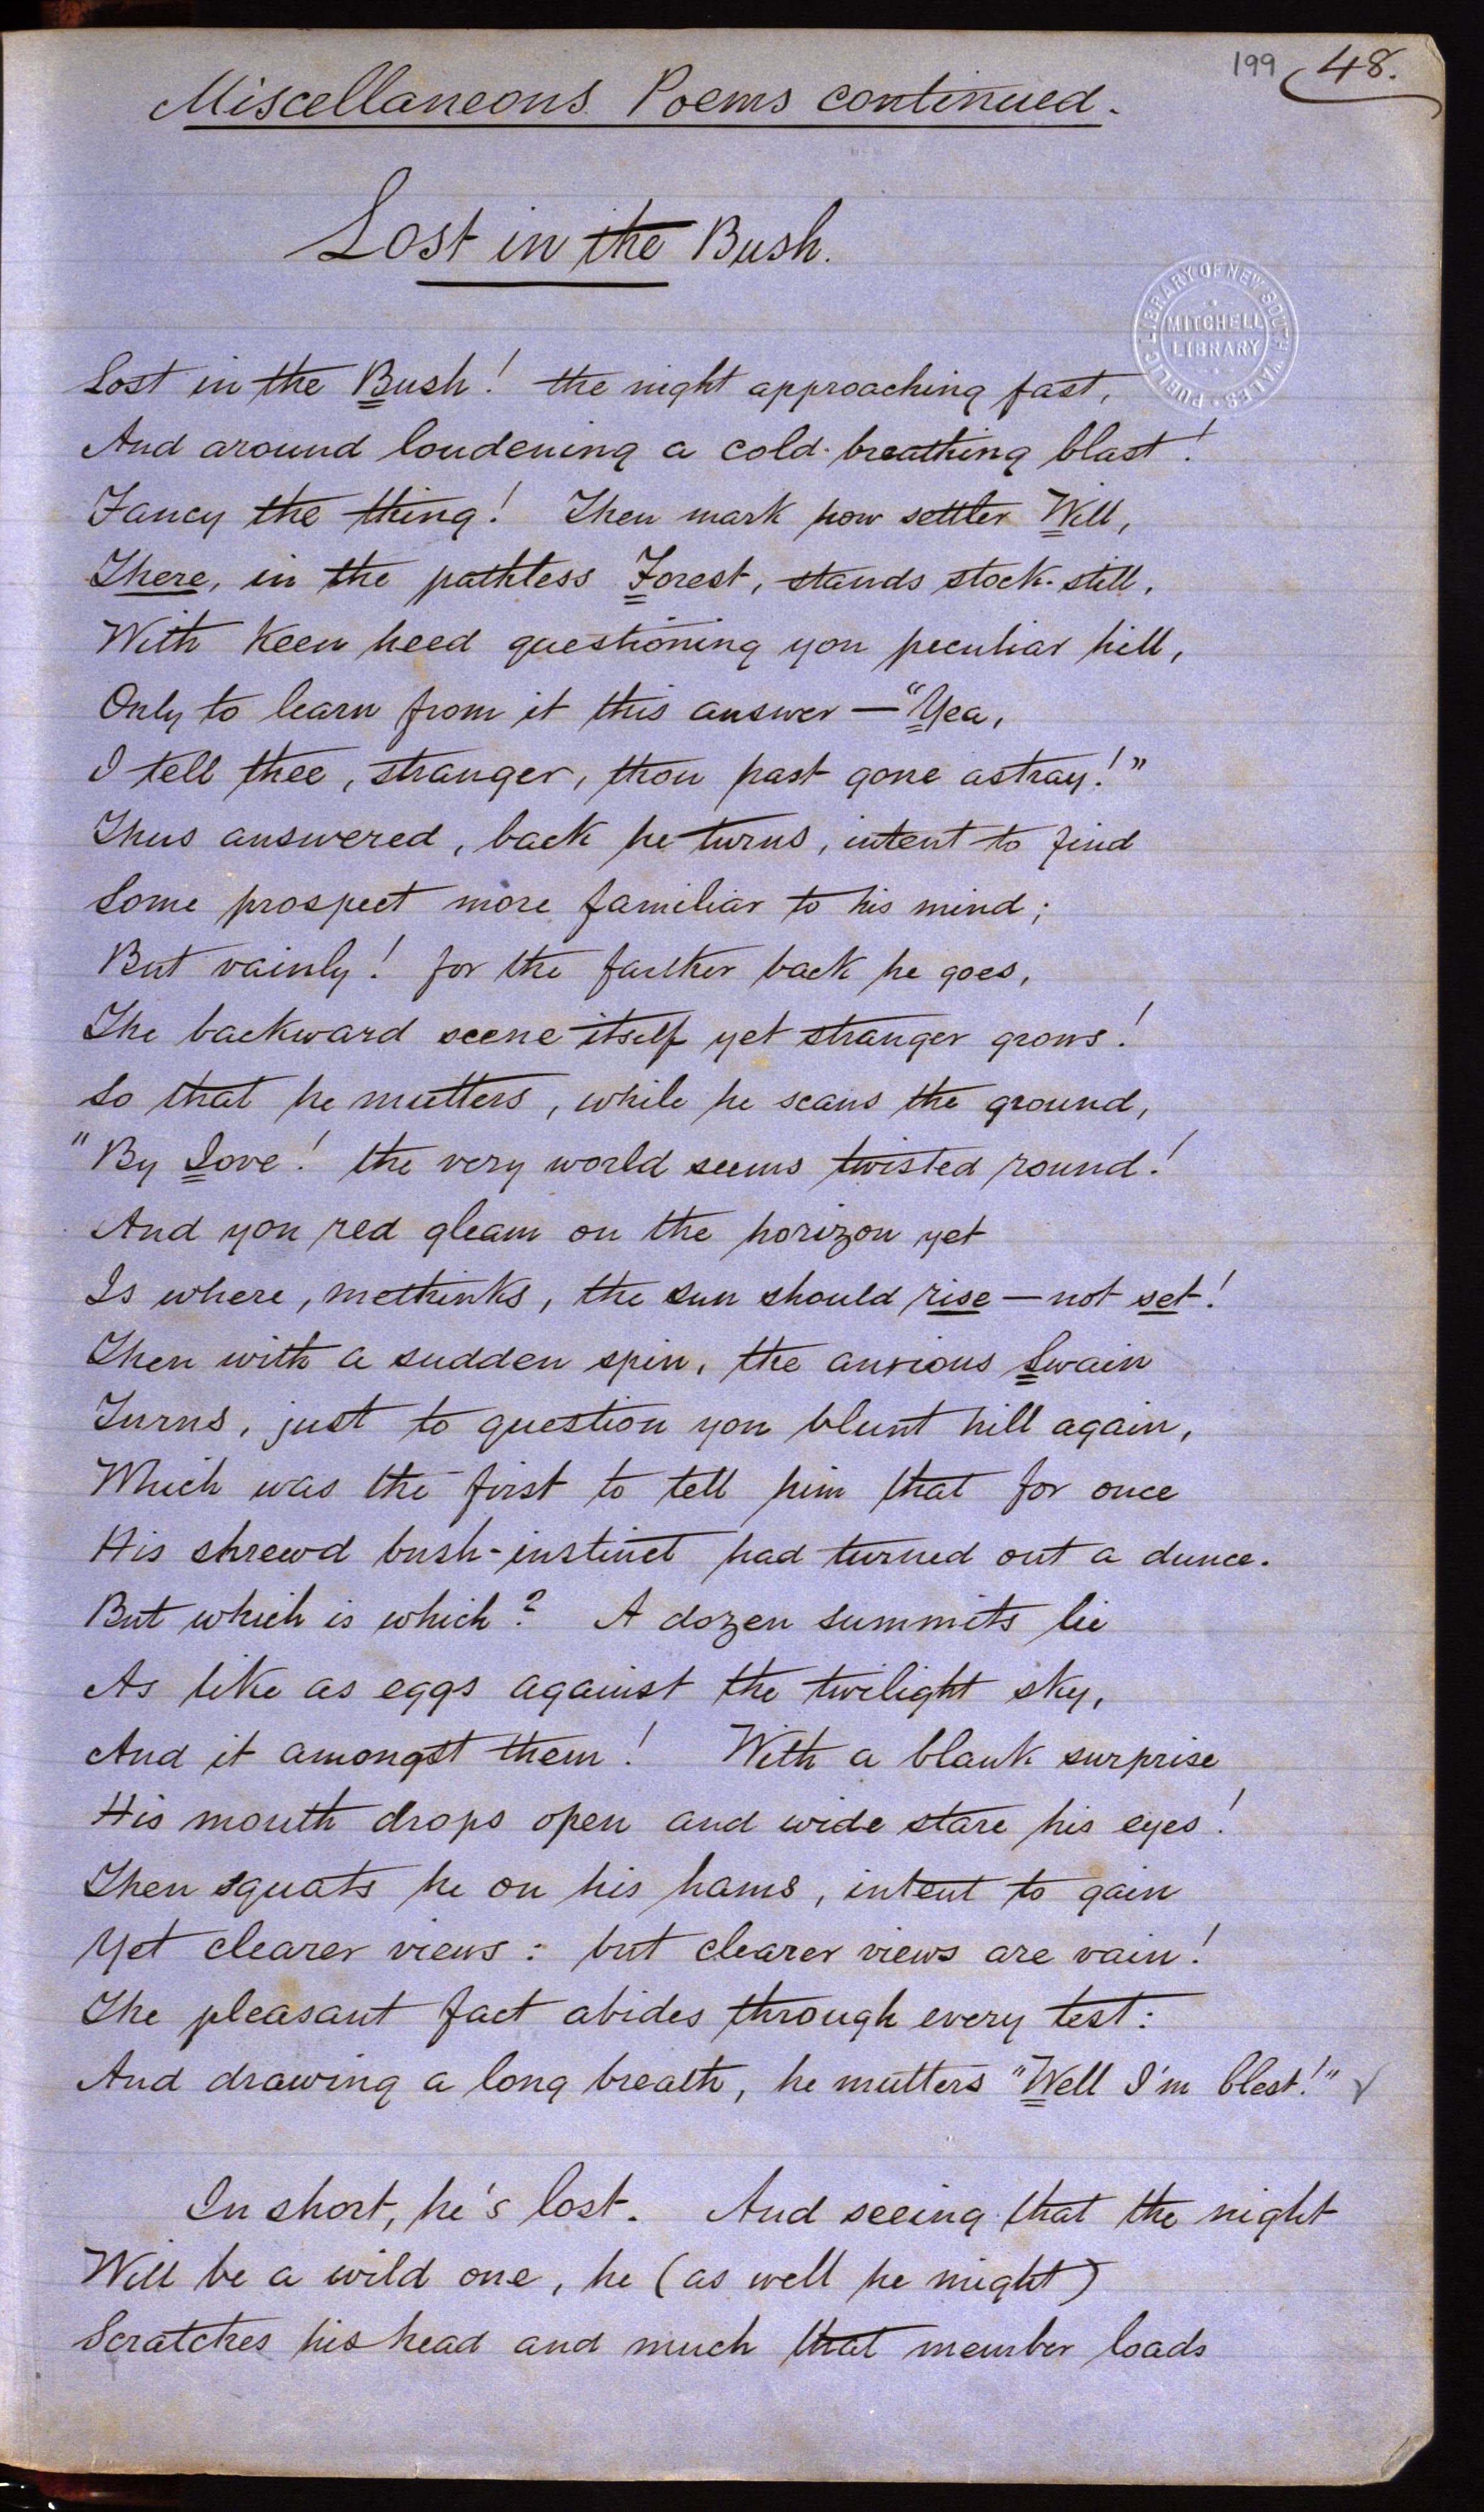 199 48.
Miscellaneous Poems continued.
Lost in the Bush.
PUBLIC LIBRARY OF NEW SOUTH WALES
MITCHELL
LIBRARY
Lost in the Bush! the night approaching fast,
And around loudening a cold-breathing blast!
Fancy the thing! Then mark how settler Will,
There, in the pathless Forest, stands stock-still,
With keen heed questioning yon peculiar hill,
Only to learn from it this answer — "Yea,
I tell thee, stranger, thou hast gone astray!"
Thus answered, back he turns, intent to find
Some prospect more familiar to his mind;
But vainly! for the farther back he goes,
The backward scene itself yet stranger grows!
So that he mutters, while he scans the ground,
"By Jove! the very world seems twisted round!
And yon red gleam on the horizon yet
Is where, methinks, the sun should rise — not set!
Then with a sudden spin, the anxious Swain
Turns, just to question yon blunt hill again,
Which was the first to tell him that for once
His shrewd bush-instinct had turned out a dunce.
But which is which? A dozen summits lie
As like as eggs against the twilight sky,
And it amongst them! With a blank surprise
His mouth drops open and wide stare his eyes!
Then squats he on his hams, intent to gain
Yet clearer views: but clearer views are vain!
The pleasant fact abides through every test:
And drawing a long breath, he mutters "Well I'm blest!"
In short, he's lost. And seeing that the night
Will be a wild one, he (as well he might)
Scratches his head and much that member loads